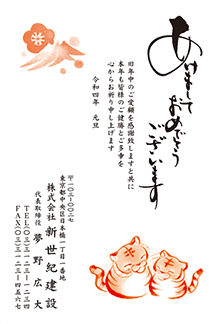 あけまして
おめでとう
ございます
旧年中のご愛顧を感謝致しますと共に
本年も皆様のご健勝とご多幸を
心からお祈り申し上げます
令和四年 元旦
〒一〇三-〇〇二七
東京都中央区日本橋一丁目一番地
株式会社 新世紀建設
代表取締役 夢野広大
TEL(〇三)三一二三-一二三四
FAX(〇三)三一二三-四五六七